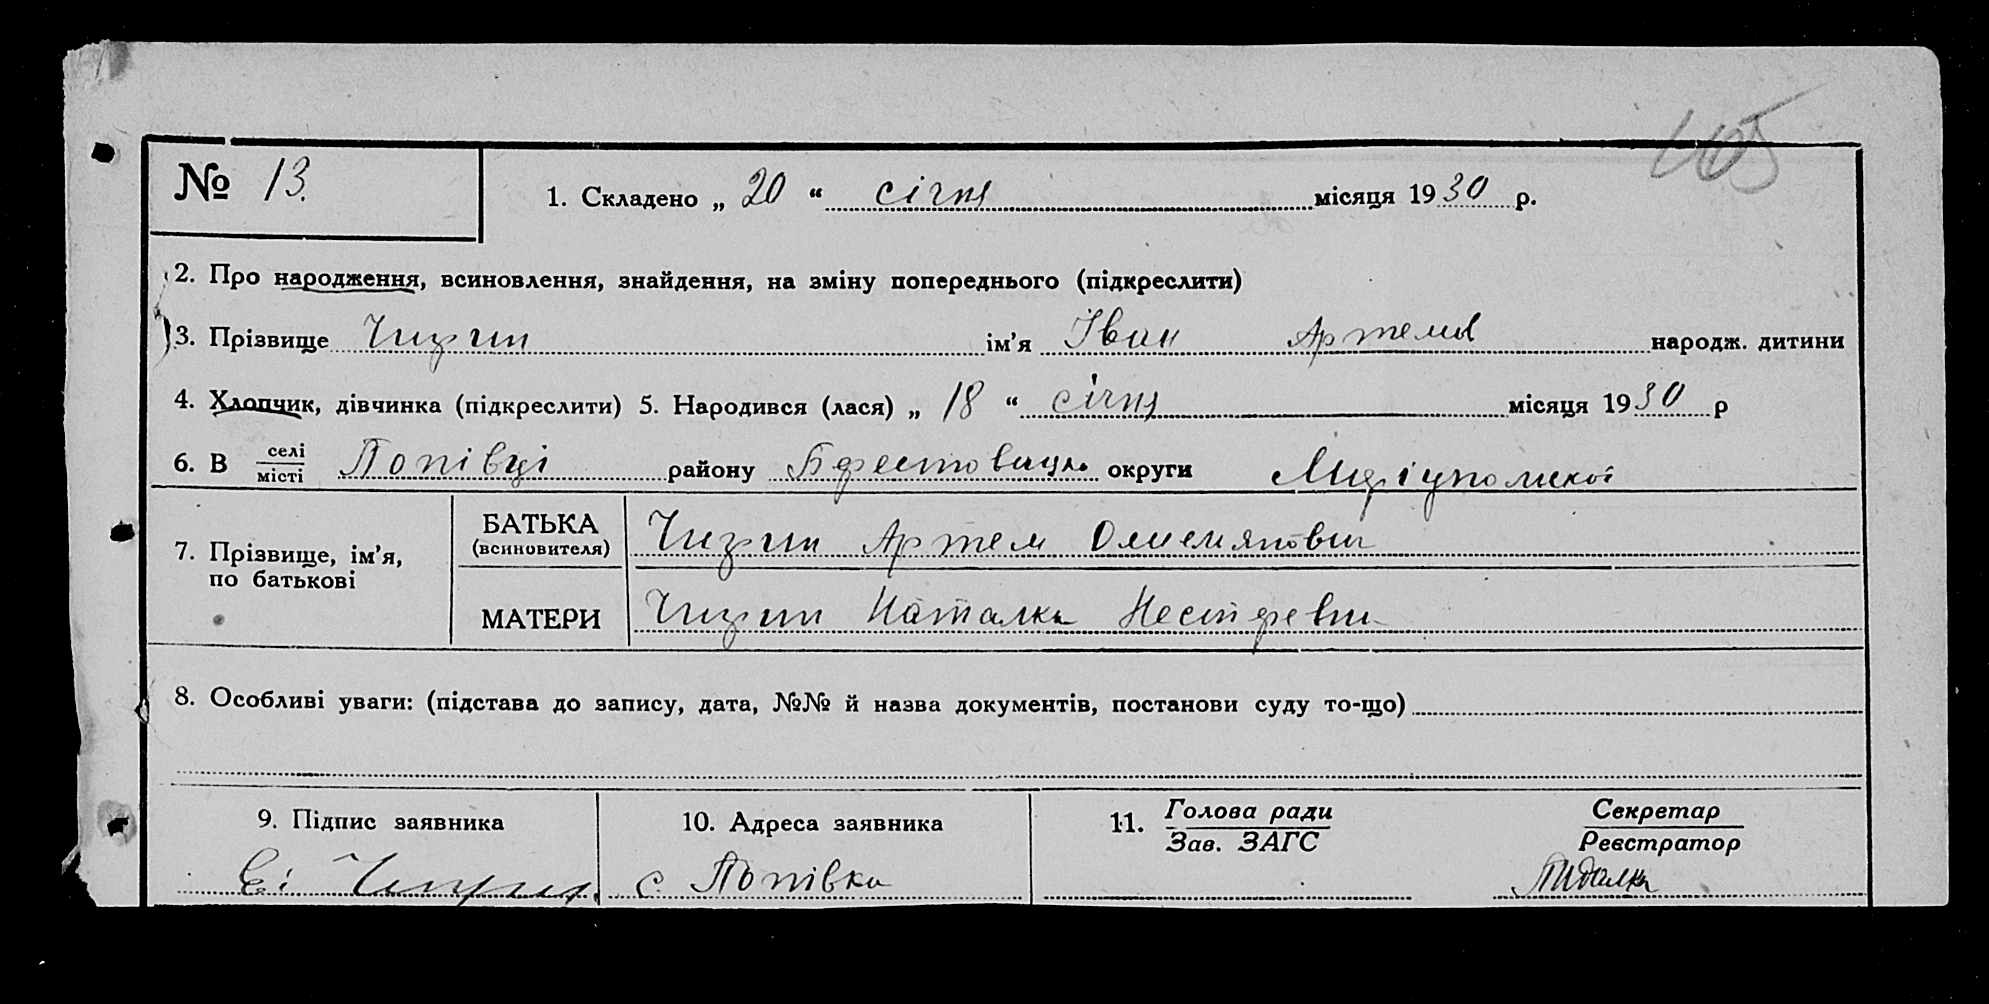 405
№ 13.
1. Складено „ 20 “ січня місяця 1930 р.
2. Про народження, всиновлення, знайдення, на зміну попереднього (підкреслити)
3. Прізвище Чигрин ім'я Іван Артемов народж. дитини
4. Хлопчик, дівчинка (підкреслити) 5. Народився (лася) „ 18 “ січня місяця 1930 р
6. В селі
місті Попівці району Берестовацьк округи Маріупольської
7. Прізвище, ім'я,
по батькові
БАТЬКА
(всиновителя)
Чигрин Артем
МАТЕРИ
Чигрин Наталка
8. Особливі уваги: (підстава до запису, дата, №№ й назва документів, постанови суду то-що)
9. Підпис заявника
10. Адреса заявника
с Попівка
11. Голова ради
Зав. ЗАГС
Секретар
Реєстратор